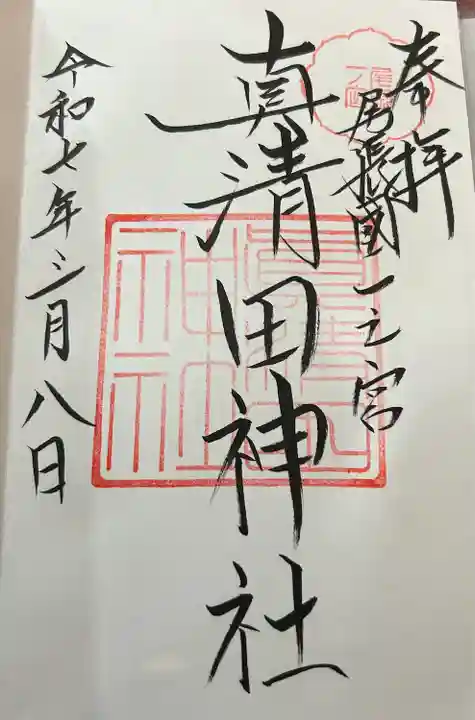 奉拝
尾張國一之宮
真清田神社
令和七年三月八日